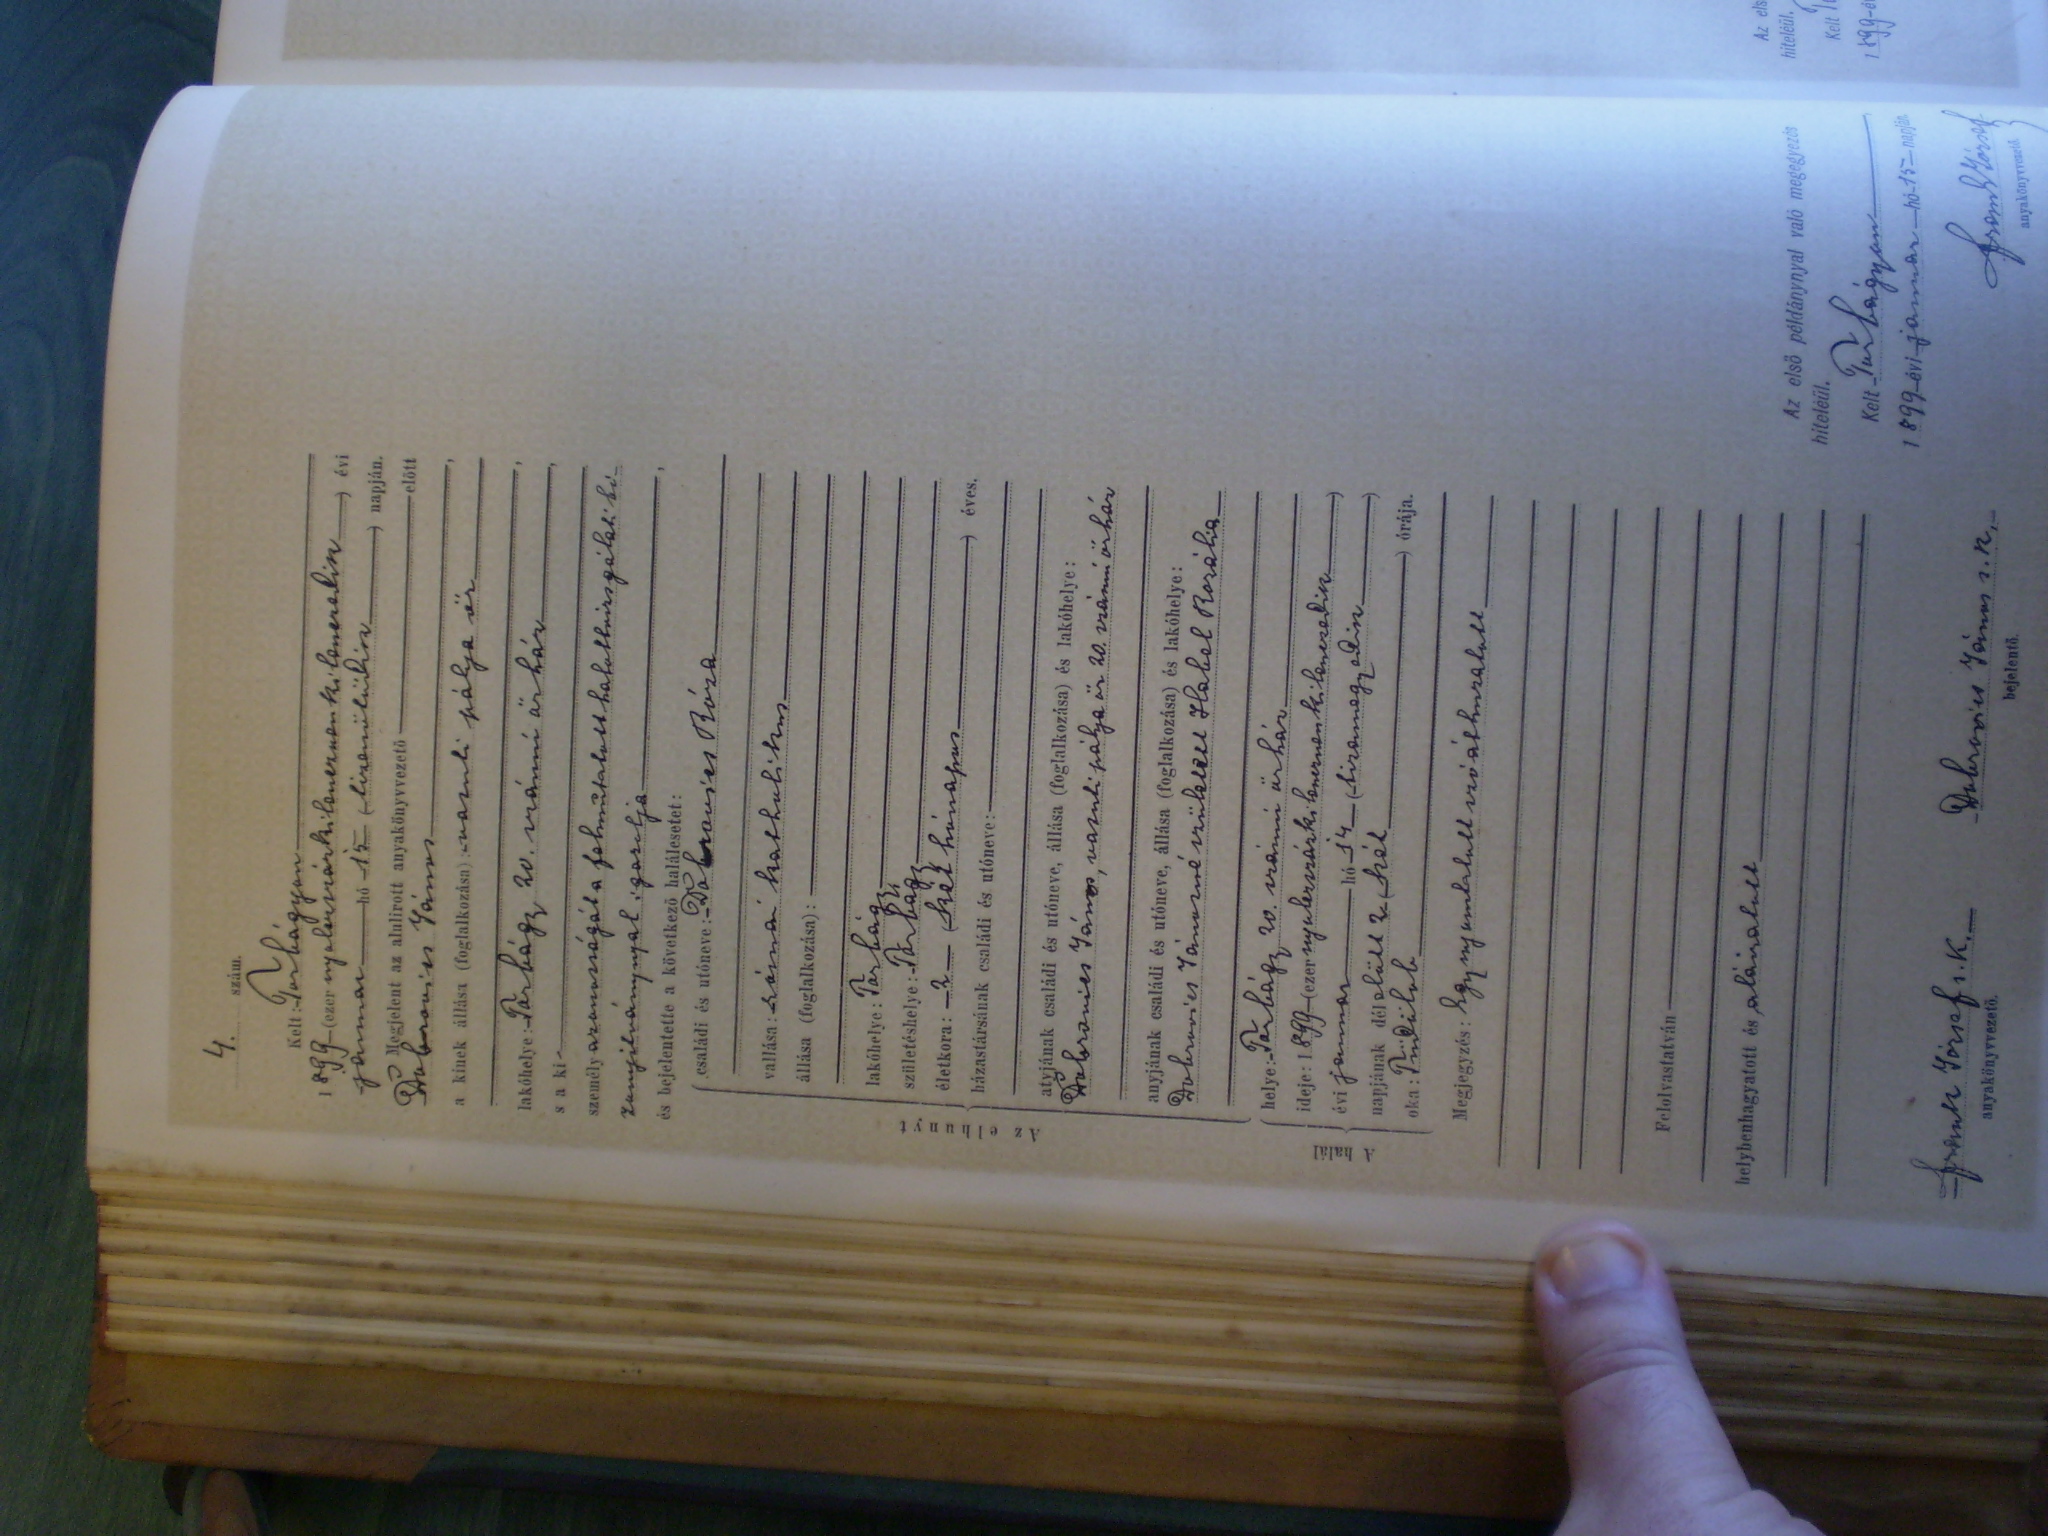 4. szám.
Kelt: Torbágyon
1899 (ezernyolczszázkilenczvenkilenczedik) évi
januar hó 15 (tizenötödik) napján.
Megjelent az alulirott anyakönyvvezető előtt
Dobrovics János,
a kinek állása (foglalkozása): vasuti pálya őr
lakóhelye: Torbágy 20. számú őrház,
s a ki,
személyazonosságát a felmutatott hatóthivizsgálati bi-
zonyitványnyal igazolja,
és bejelentette a következő halálesetet:
Az elhunyt
családi és utóneve: Dobrovics Róza
vallása: római katholikus
állása (foglalkozása):
lakóhelye: Torbágy
születéshelye: Torbágy
életkora: 2 (két hónapos) éves,
házastársának családi és utóneve:
atyjának családi és utóneve, állása (foglalkozása) és lakóhelye:
Dobrovics János, vasuti pálya őr 20. számú őrház
anyjának családi és utóneve, állása (foglalkozása) és lakóhelye:
Dobrovics Jánosné született Habel Rozália
A halál
helye: Torbágy 20. számú őrház
ideje: 1899 (ezernyolczszázkilenczvenkilenczedik)
évi januar hó 14 (tizennegyedik)
napjának délelőtt 2 (két) órája.
oka: Tüdőlob
Megjegyzés: Egy nyomtatott szó áthuzatott
Felolvastatván
helybenhagyatott és aláiratott
Frank József s. k.
anyakönyvvezető.
Dobrovics János s. k.
bejelentő.
Az első példánynyal való megegyezés
hiteléül.
Kelt Torbágyon
1899 évi januar hó 15 napján
Frank József
anyakönyvvezető.
Az els
hiteléül.
Kelt
1899 év